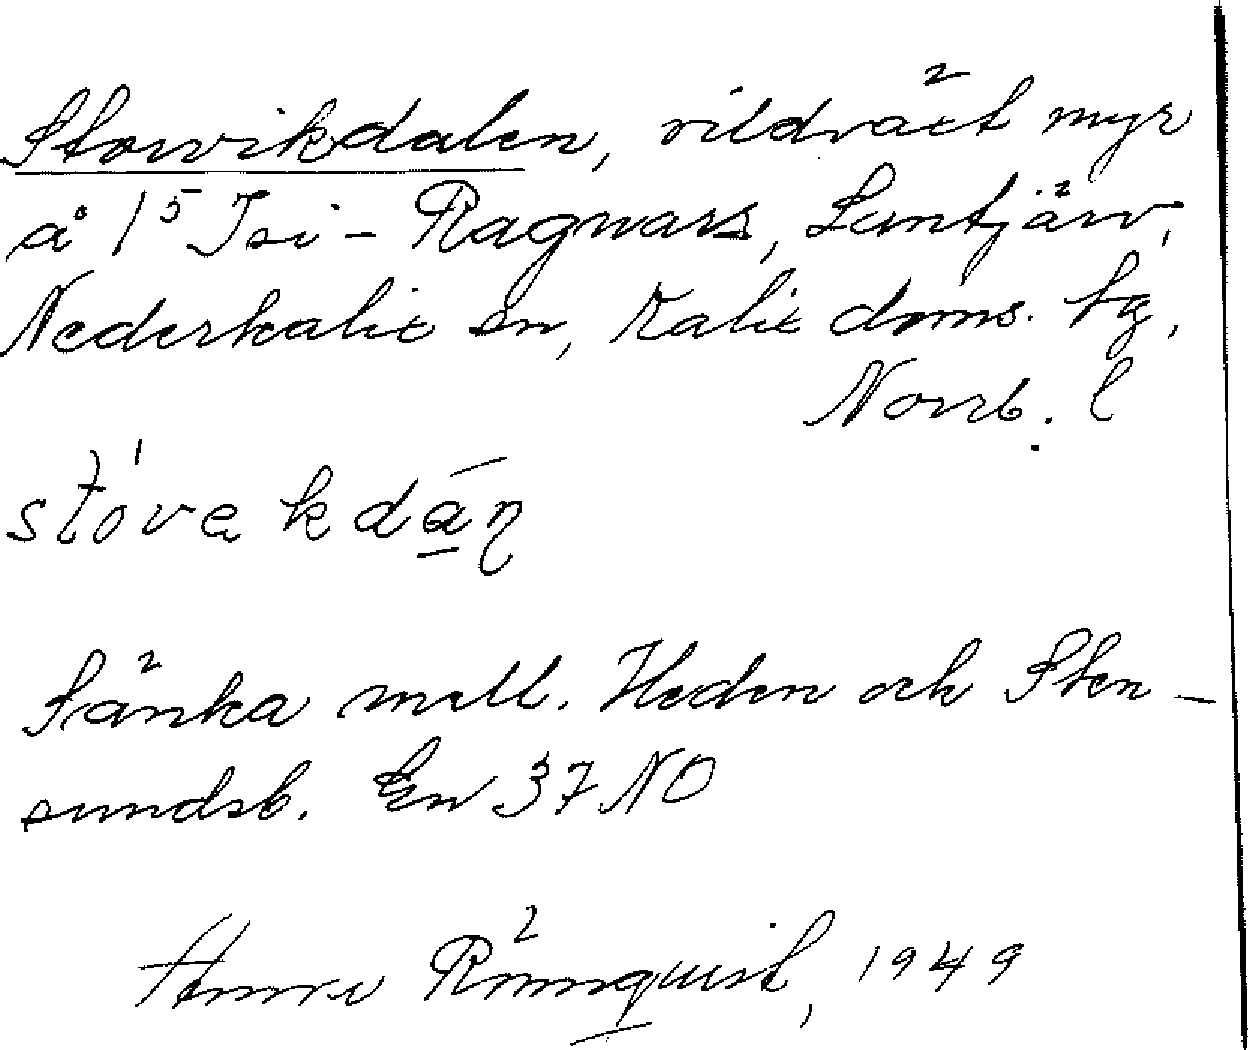 Storvikdalen, vildvået myr
å 1⁵ Isi-Ragnars, Lantjärv,
Nederkalix sn, Kalix doms. tg,
Norrb. l
stóvakdạ́ṇ
Sänka mell. Heden och Sten-
sundsb. En 37 NO
Rönnquist, 1949